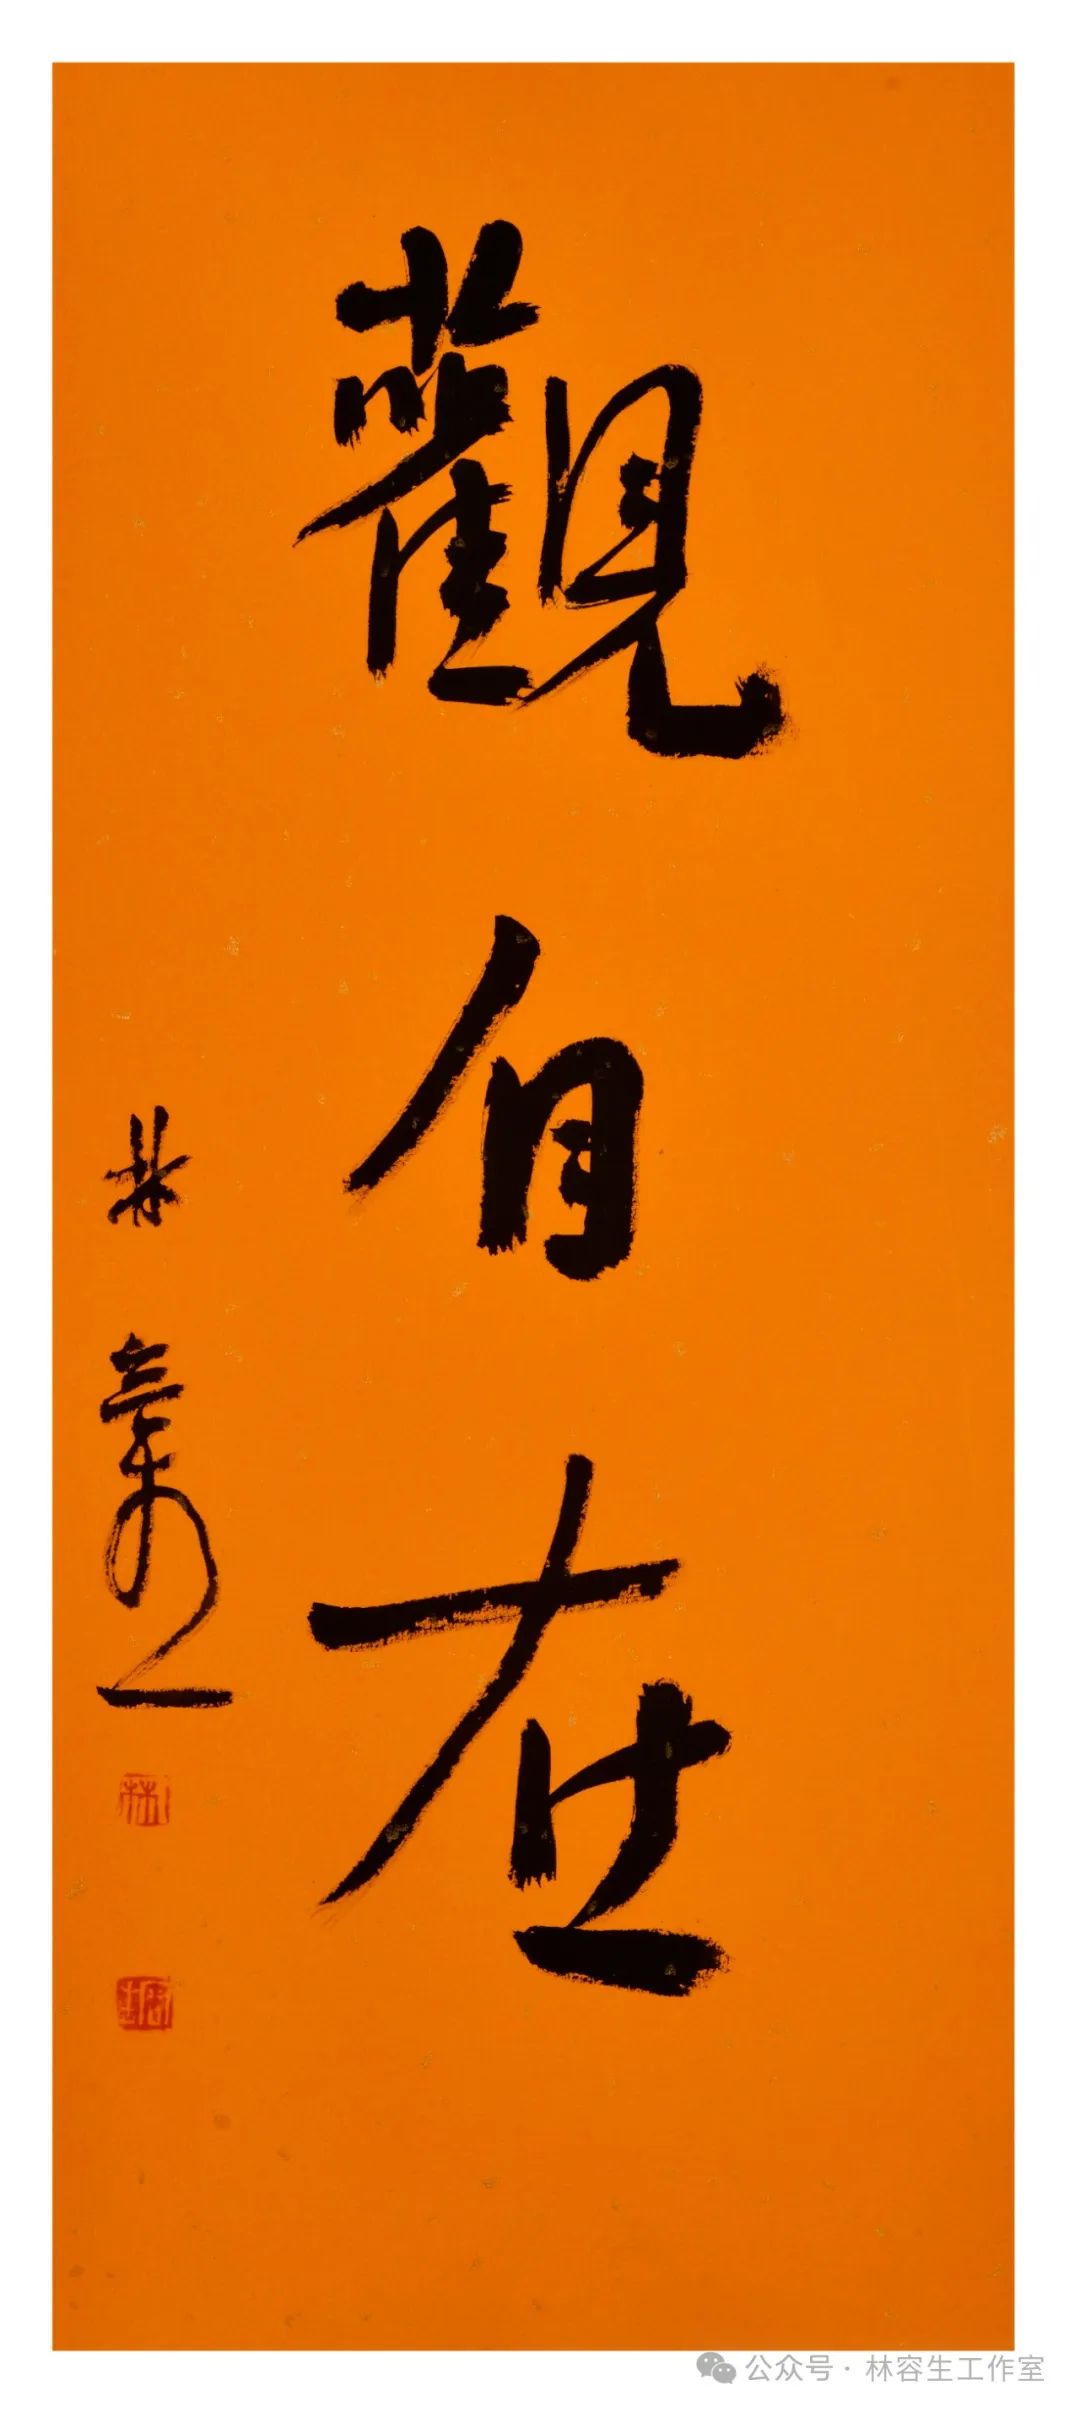 觀自在
林容生
林
公众号 · 林容生工作室